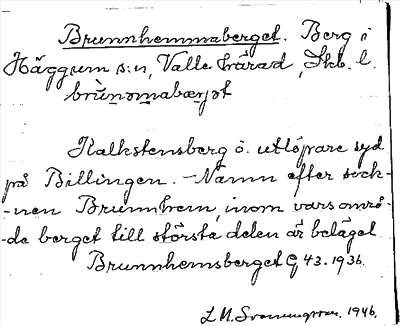 Brunnhemmaberget. Berg i
Häggum s:n, Valle härad, Skb. l.
brùnomabærjət
Kalkstensberg o. utlöpare syd
på Billingen. - Namn efter sock-
-nen Brunnhem, inom vars områ-
-de berget till största delen är beläget
Brunnhemsberget G 43. 1936.
L M. 1946.